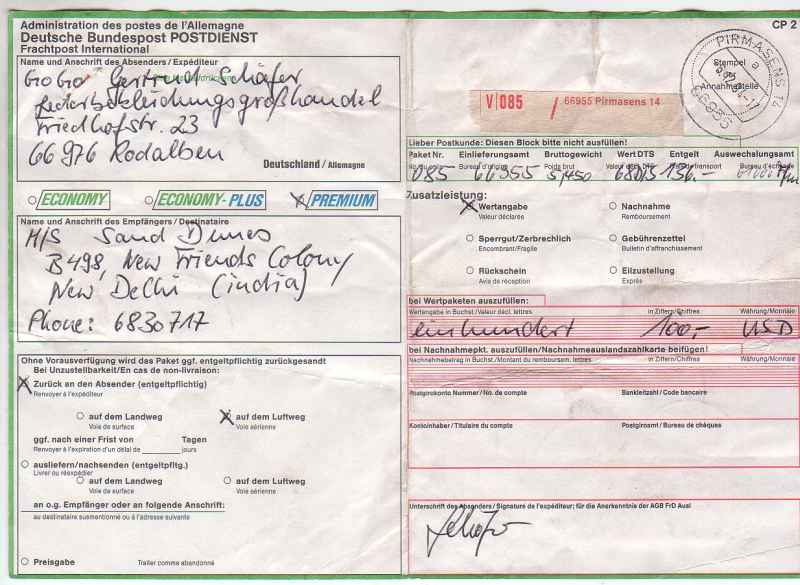 Administration des postes de l'Allemagne
Deutsche Bundespost POSTDIENST
Frachtpost International
CP 2
Name und Anschrift des Absenders / Expéditeur
Go Go Gertrud Schäfer
Lederbekleidungsgroßhandel
Friedhofstr. 23
66976 Rodalben
Deutschland / Allemagne
ECONOMY
ECONOMY-PLUS
PREMIUM
Name und Anschrift des Empfängers / Destinataire
M/S Sand Dunes
B 498, New Friends Colony
New Delhi (india)
Phone: 6830717
Ohne Vorausverfügung wird das Paket ggf. entgeltpflichtig zurückgesandt
Bei Unzustellbarkeit/En cas de non-livraison:
Zurück an den Absender (entgeltpflichtig)
Renvoyer à l'expéditeur
auf dem Landweg
Voie de surface
auf dem Luftweg
Voie aérienne
ggf. nach einer Frist von Tagen
Renvoyer à l'expiration d'un délai de jours
ausliefern/nachsenden (entgeltpfltg.)
Livrer ou réexpédier
auf dem Landweg
Voie de surface
auf dem Luftweg
Voie aérienne
an o.g. Empfänger oder an folgende Anschrift:
au destinataire susmentionné ou à l'adresse suivante
Preisgabe
Traiter comme abandonné
PIRMASENS 14
a
66955
Stempel
der
Annahmestelle
V 085
66955 Pirmasens 14
Lieber Postkunde: Diesen Block bitte nicht ausfüllen!
Paket Nr. Einlieferungsamt Bruttogewicht Wert DTS Entgelt Auswechselungsamt
Bureau d'origine Poids brut
085 66955 136.-
Zusatzleistung:
Wertangabe
Valeur déclarée
Nachnahme
Remboursement
Sperrgut/Zerbrechlich
Encombrant/Fragile
Gebührenzettel
Bulletin d'affranchissement
Rückschein
Avis de réception
Eilzustellung
Exprès
bei Wertpaketen auszufüllen:
Wertangabe in Buchst./Valeur décl. lettres in Ziffern/Chiffres Währung/Monnaie
einhundert 100,- USD
bei Nachnahmepkt. auszufüllen/Nachnahmeauslandszahlkarte beifügen!
Nachnahmebetrag in Buchst./Montant du remboursem. lettres in Ziffern/Chiffres Währung/Monnaie
Postgirokonto Nummer/No. de compte Bankleitzahl/Code bancaire
Kontoinhaber/Titulaire du compte Postgiroamt/Bureau de chèques
Unterschrift des Absenders/Signature de l'expéditeur; für die Anerkenntnis der AGB FrD Ausl
Schäfer